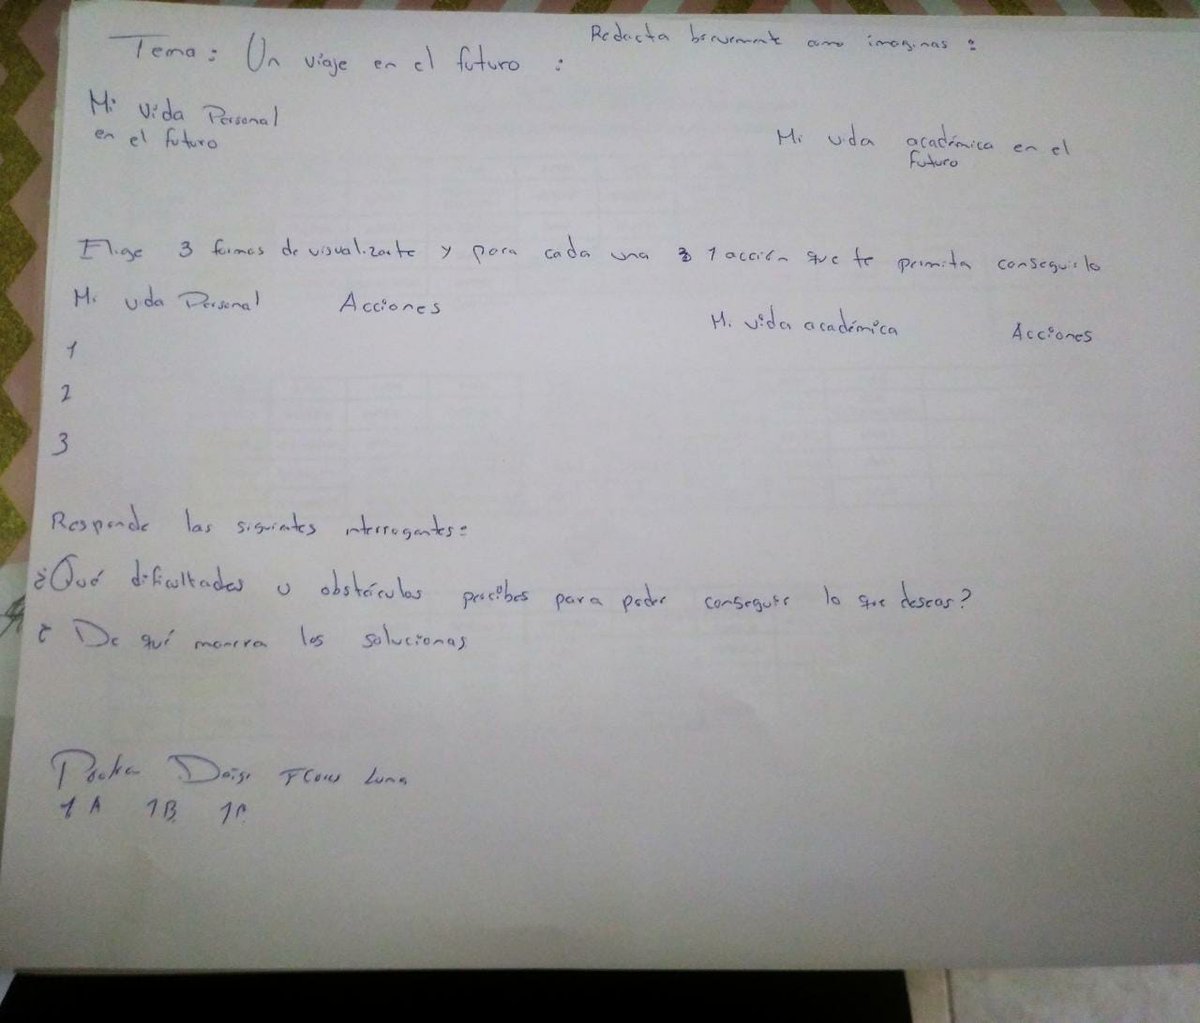 Redacta brevemente como imaginas :
Tema : Un viaje en el futuro :
Mi vida Personal
en el futuro
Mi vida académica en el
futuro
Elige 3 formas de visualizarte y para cada una 1 acción que te permita conseguirlo
Mi vida Personal Acciones
Mi vida académica Acciones
1
2
3
Responde las siguientes interrogantes:
¿Qué dificultades u obstáculos percibes para poder conseguir lo que deseas?
¿ De qué manera los solucionas
Flores Luna
1 A 1B 1C